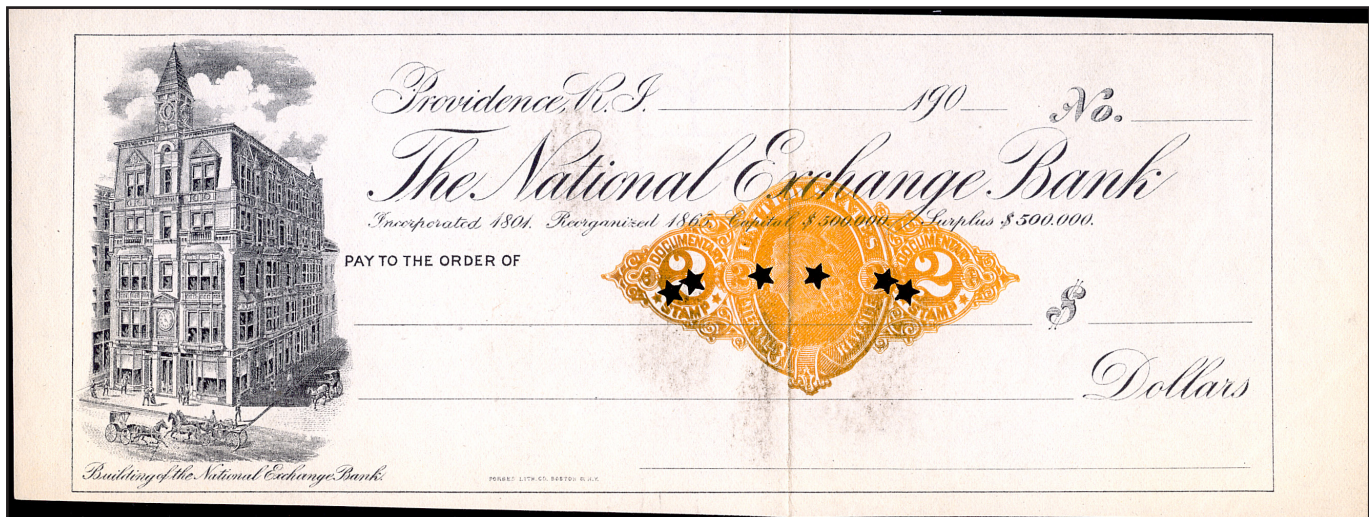 Providence, R.I. 190 No.
The National Exchange Bank
Incorporated 1801. Reorganized 1865. Capital $500.000. Surplus $500.000.
PAY TO THE ORDER OF
DOCUMENTARY
2
STAMP
DOCUMENTARY
2
STAMP
$
Dollars
Building of the National Exchange Bank.
FORBES LITH. CO. BOSTON & N.Y.